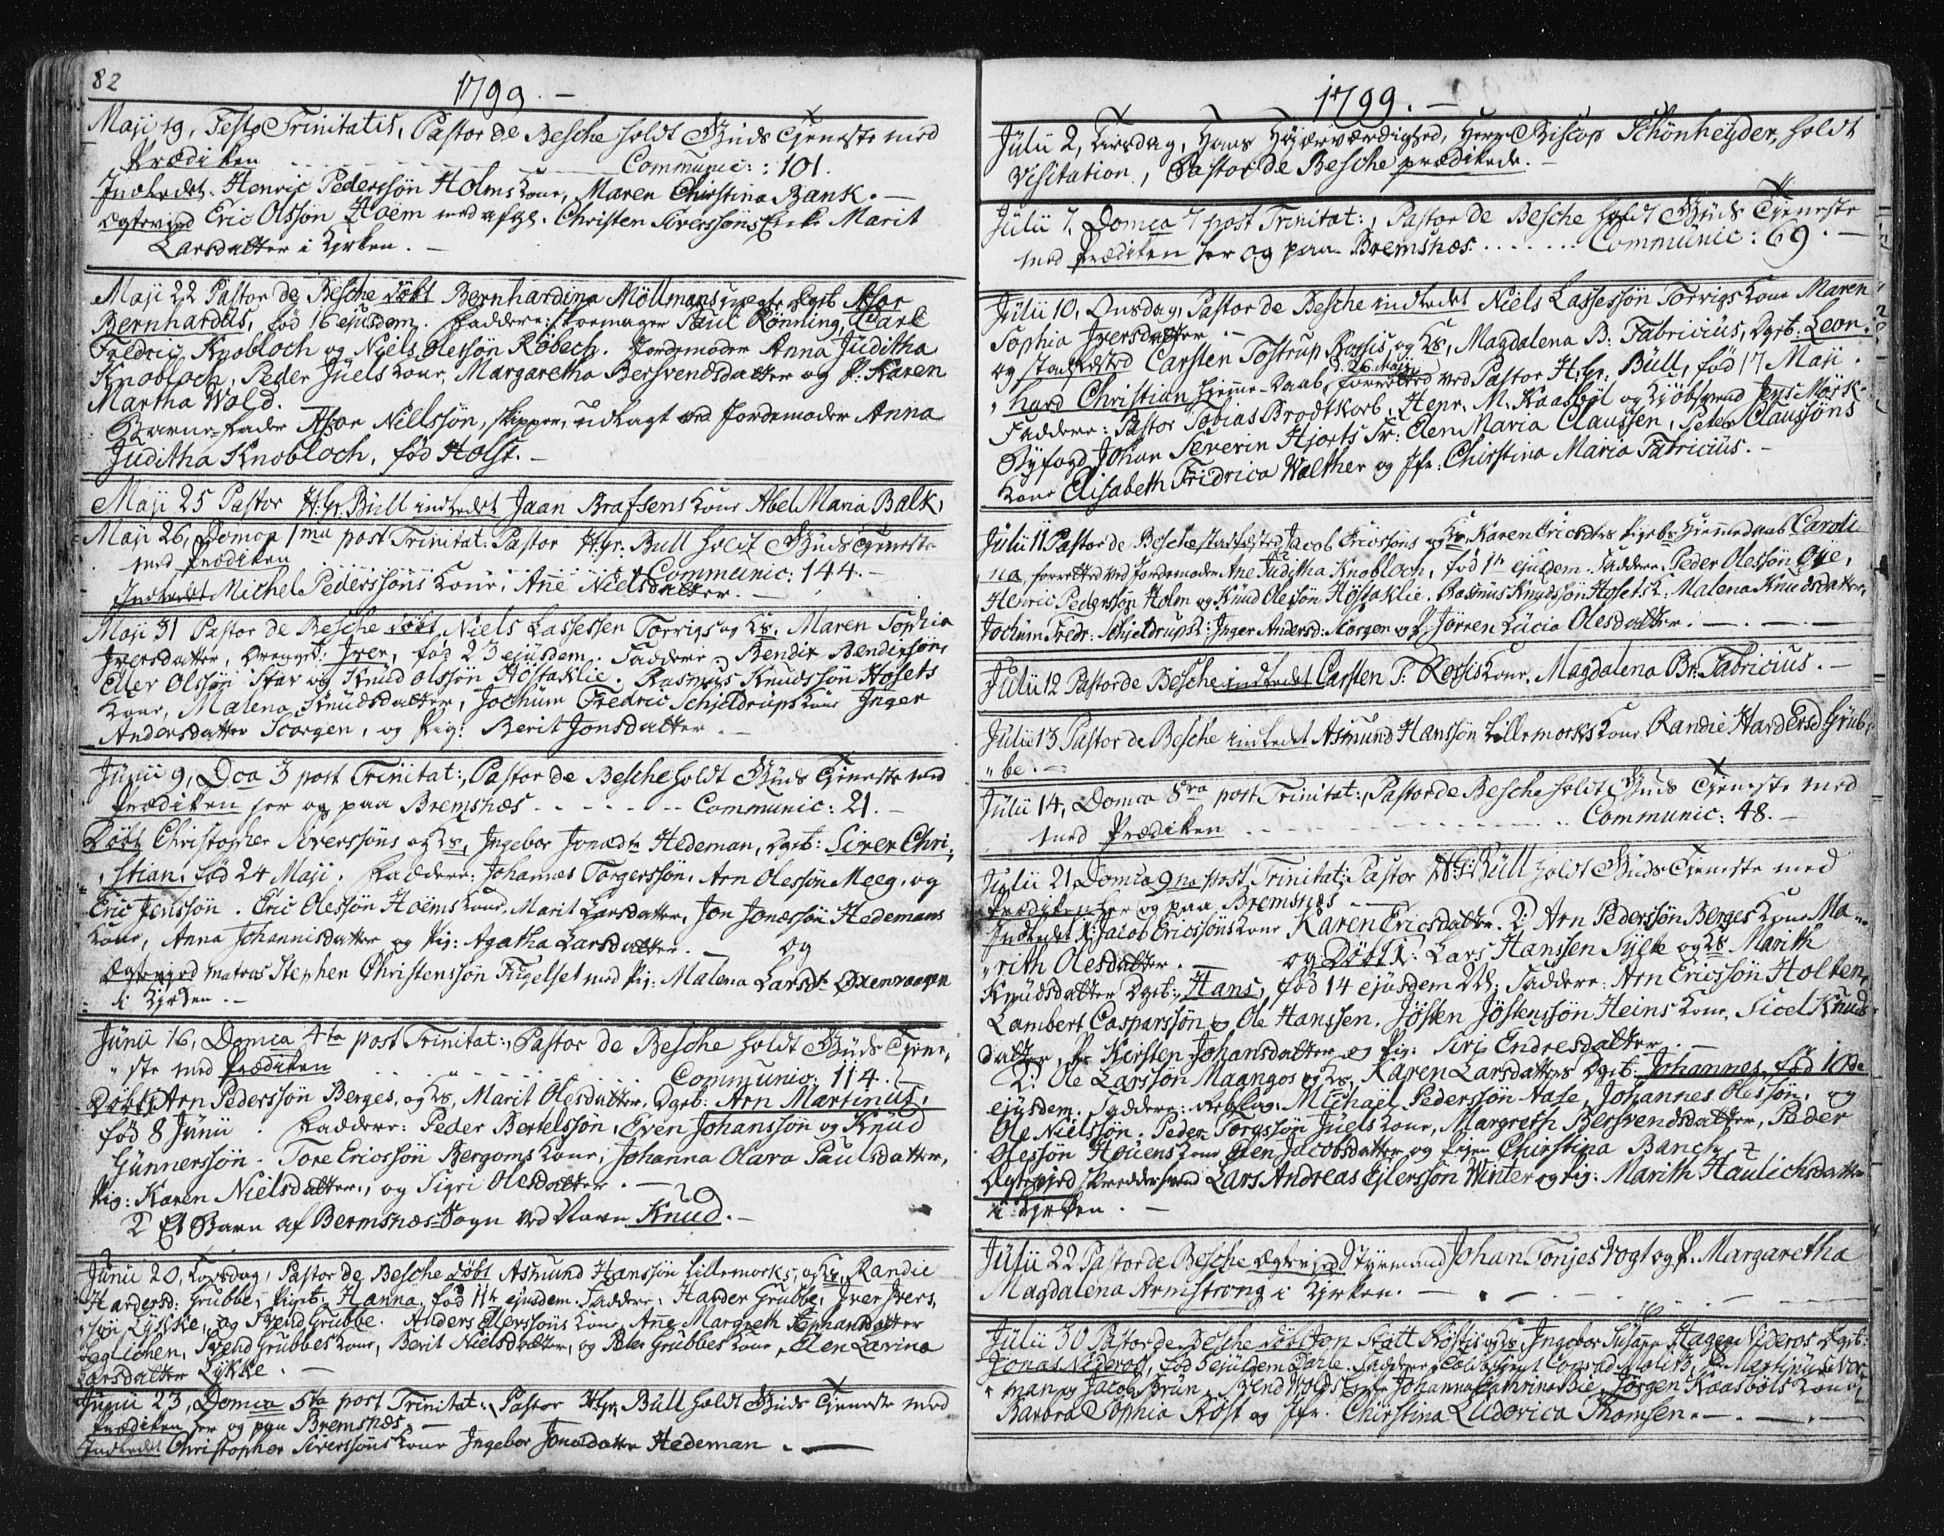 82
1799. —
Maji 19, Festo Trinitatis, Pastor de Besche holdt Guds Tjeneste med
Prædiken . . . . . . Communic: : 101.
Indledet. Henric Pederssøn Holms Kone, Maren Christina Bank. —
Egtevied Eric Olssøn Hoëm med afg. Christen Siverssøns Enke Marit
Larsdatter i Kirken. —
Maji 22 Pastor de Besche døbt Bernhardina Möllmans uægte Dgb Asor
Bernhardus, fød 16 ejusdem. Faddere: Skomager Paul Rønning, Carl
Fredric Knobloch og Niels Olessøn Røbech. Jordemoder Anna Juditha
Knobloch, Peder Juels Kone, Margaretha Bersvendsdatter og P. Karen
Martha Wold.
Barne-Fader Asor Nielssøn, Skipper, udlagt ved Jordemoder Anna
Juditha Knobloch, fød Holst. —
Maji 25 Pastor H: Gr: Bull indledet Jaan Brafsens Kone Abel Maria Balk.
Maji 26, Domca 1ma post Trinitat: Pastor H: Gr: Bull holdt Guds Tjeneste
med Prædiken . . . . . . Communic: 144. —
Indledet Michel Pederssøns Kone, Ane Nielsdatter. —
Maji 31 Pastor de Besche døbt Niels Lassessen Torvigs og Hs. Maren Sophia
Iversdatter, Drengeb: Iver, fød 23 ejusdem. Faddere: Bendix Bendixsøn,
Eller Olssøn Star og Knud Olssøn Hostaklie. Rasmus Knudssøn Hosets
Kone, Malena Knudsdatter, Jochum Fredric Schjeldrups Kone Inger
Andersdatter Scorgen, og Pig: Berit Jonsdatter. —
Junii 9, Dca 3 post Trinitat:, Pastor de Besche holdt Guds Tjeneste med
Prædiken her og paa Bremsnæs . . . . . . Communic: 21. —
Døbt Christopher Siverssøns og Hs, Ingebor Jonædtr Hedeman, Dgb: Siver Chri-
stian, fød 24 Maji. Faddere: Johannes Torgerssøn, Arn Olessøn Meeg, og
Eric Joelssøn. Eric Olessøn Hoëms Kone, Marit Larsdatter, Jon Jonæssøn Hedemans
Kone, Anna Johannisdatter og Pig: Agatha Larsdatter. — og
Egtevied Matros Stephen Christenssøn Fugelset med Pig: Malena Larsdtr Oxenvaagen
i Kirken. —
Junii 16, Domca 4ta post Trinitat:, Pastor de Besche holdt Guds Tjene-
ste med Prædiken . . . . . . Communic. 114. —
Døbt 1 Arn Pederssøn Berges, og Hs, Marit Olesdatter, Dgb: Arn Martinus,
fød 8 Junii. Faddere: Peder Bertelssøn, Even Johanssøn og Knud
Gunnerssøn. Tore Ericssøn Bergoms Kone, Johanna Olava Paulsdatter,
Pig: Karen Nielsdatter, og Sigri Olesdatter. —
2 Et Barn af Bermsnæs Sogn ved Navn Knud. —
Junii 20, Torsdag, Pastor de Besche døbt Asmund Hanssøn Lillemorks, og Hs Randie
Hardersd: Grubbe, Pigeb: Hanna, fød 11te ejusdem. Faddere: Harder Grubbe, Iver Ivers-
søn Lykke, og Svend Grubbe. Anders Ellerssøns Kone, Ane Margreth Stephansdatter
Leglichen, Svend Grubbes Kone, Berit Nielsdatter, og Peder Grubbes Kone, Elen Larina
Larsdatter Lykke. —
Junii 23, Domca 5ta post Trinitat:, Pastor H: Gr: Bull holdt Guds Tjeneste med
Prædiken her og paa Bremsnæs. —
Indledet Christopher Siverssøns Kone Ingebor Jonædatter Hedeman. —
1799. —
Julii 2, Tirsdag, Hans Høyærværdighed, Herr Biscop Schönheyder, holdt
Visitation, Pastor de Besche prædikede. —
Julii 7, Domca 7 post Trinitat:, Pastor de Besche holdt Guds Tjeneste
med Prædiken her og paa Bremsnæs . . . . . . Communic: 69. —
Julii 10, Onsdag, Pastor de Besche indledet Niels Lassessøn Torvigs Kone Maren
Sophia Iversdatter. —
og stadfæsted Carsten Tostrup Rossis, og Hs, Magdalena B: Fabricius, Dgb: Leon-
d. 26 Maji
hard Christian Hjemme-Daab, forretted ved Pastor H: Gr: Bull, fød 17 Maji.
Faddere: Pastor Tobias Brodtkorb, Henr. M. Kaasbøl og Kjøbsvend Jens Mørk.
Byfogd Johan Severin Hjorts Fr: Elen Maria Claussen, Peter Claussøns
Kone Elisabeth Fridrica Walther og Jfr: Christina Maria Fabricius. —
Julii 11 Pastor de Besche stadfæsted Jacob Ericssøns og Hs, Karen Ericsdtrs Pigebs Hjemmedaab Caroli-
na, forretted ved Jordemoder Ane Juditha Knobloch, fød 1te ejusdem. Faddere: Peder Olessøn Øye,
Henric Pederssøn Holm og Knud Olessøn Hostaklie. Rasmus Knudssøn Hosets K: Malena Knudsdatter,
Jochum Fredr: Schjeldrups K: Inger Andersd: Scorgen og P. Jørren Lucia Olesdatter. —
Julii 12 Pastor de Besche indledet Carsten T: Rossis Kone, Magdalena Br: Fabricius. —
Julii 13 Pastor de Besche indledet Asmund Hanssøn Lillemorks Kone Randie Hardersd Grub-
be. —
Julii 14, Domca 8va post Trinitat:, Pastor de Besche holdt Guds Tjeneste med
med Prædiken . . . . . . Communic: 48. —
Julii 21, Domca 9na post Trinitat: Pastor H: G: Bull holdt Guds Tjeneste med
Prædiken her og paa Bremsnæs —
Indledet 1: Jacob Ericssøns Kone Karen Ericsdatter. 2: Arn Pederssøn Berges Kone Ma-
rith Olesdatter. — og Døbt 1: Lars Hanssen Sylte og Hs. Marith
Knudsdatter Dgb:, Hans, fød 14 ejusdem. Faddere: Arn Ericssøn Holten,
Lambert Casparssøn og Ole Hanssen. Jøsten Jøstenssøn Heins Kone, Sicel Knuds-
datter, P. Kirsten Johansdatter og Pig: Siri Endresdatter. —
2: Ole Larssøn Maangos og Hs, Karen Larsdatters Dgb: Johannes, fød 10de
ejusdem. Faddere: Michael Pederssøn Aase, Johannes Olessøn, og
Ole Nielssøn. Peder Torgssøn Juels Kone, Margreth Bersvendsdatter, Peder
Olessøn Houens Kone Elen Jacobsdatter og Pigen Christina Banch.
Egtevied Skreddersvend Lars Andreas Ejlerssøn Winter og Pig: Marith Haulichsdatter
i Kirken. —
Julii 22 Pastor de Besche Egteviet Styrmand Johan Tonjes Vogt og P. Margaretha
Magdalena Armstrong i Kirken. —
Julii 30 Pastor de Besche døbt Jon Slott Røstis og Hs, Ingebor Susanna Hagen Videros Dgb:
Jonas Nideros, fød 5 ejusdem Faddere: Conrad Moltz, Martinus Nor-
man og Jacob Brun. Svend Wolds Enke Johanna Cathrina Bie, Jørgen Kaasbøls Kone
Barbra Sophia Røst og Jfr. Christina Ludovica Thomsen. —